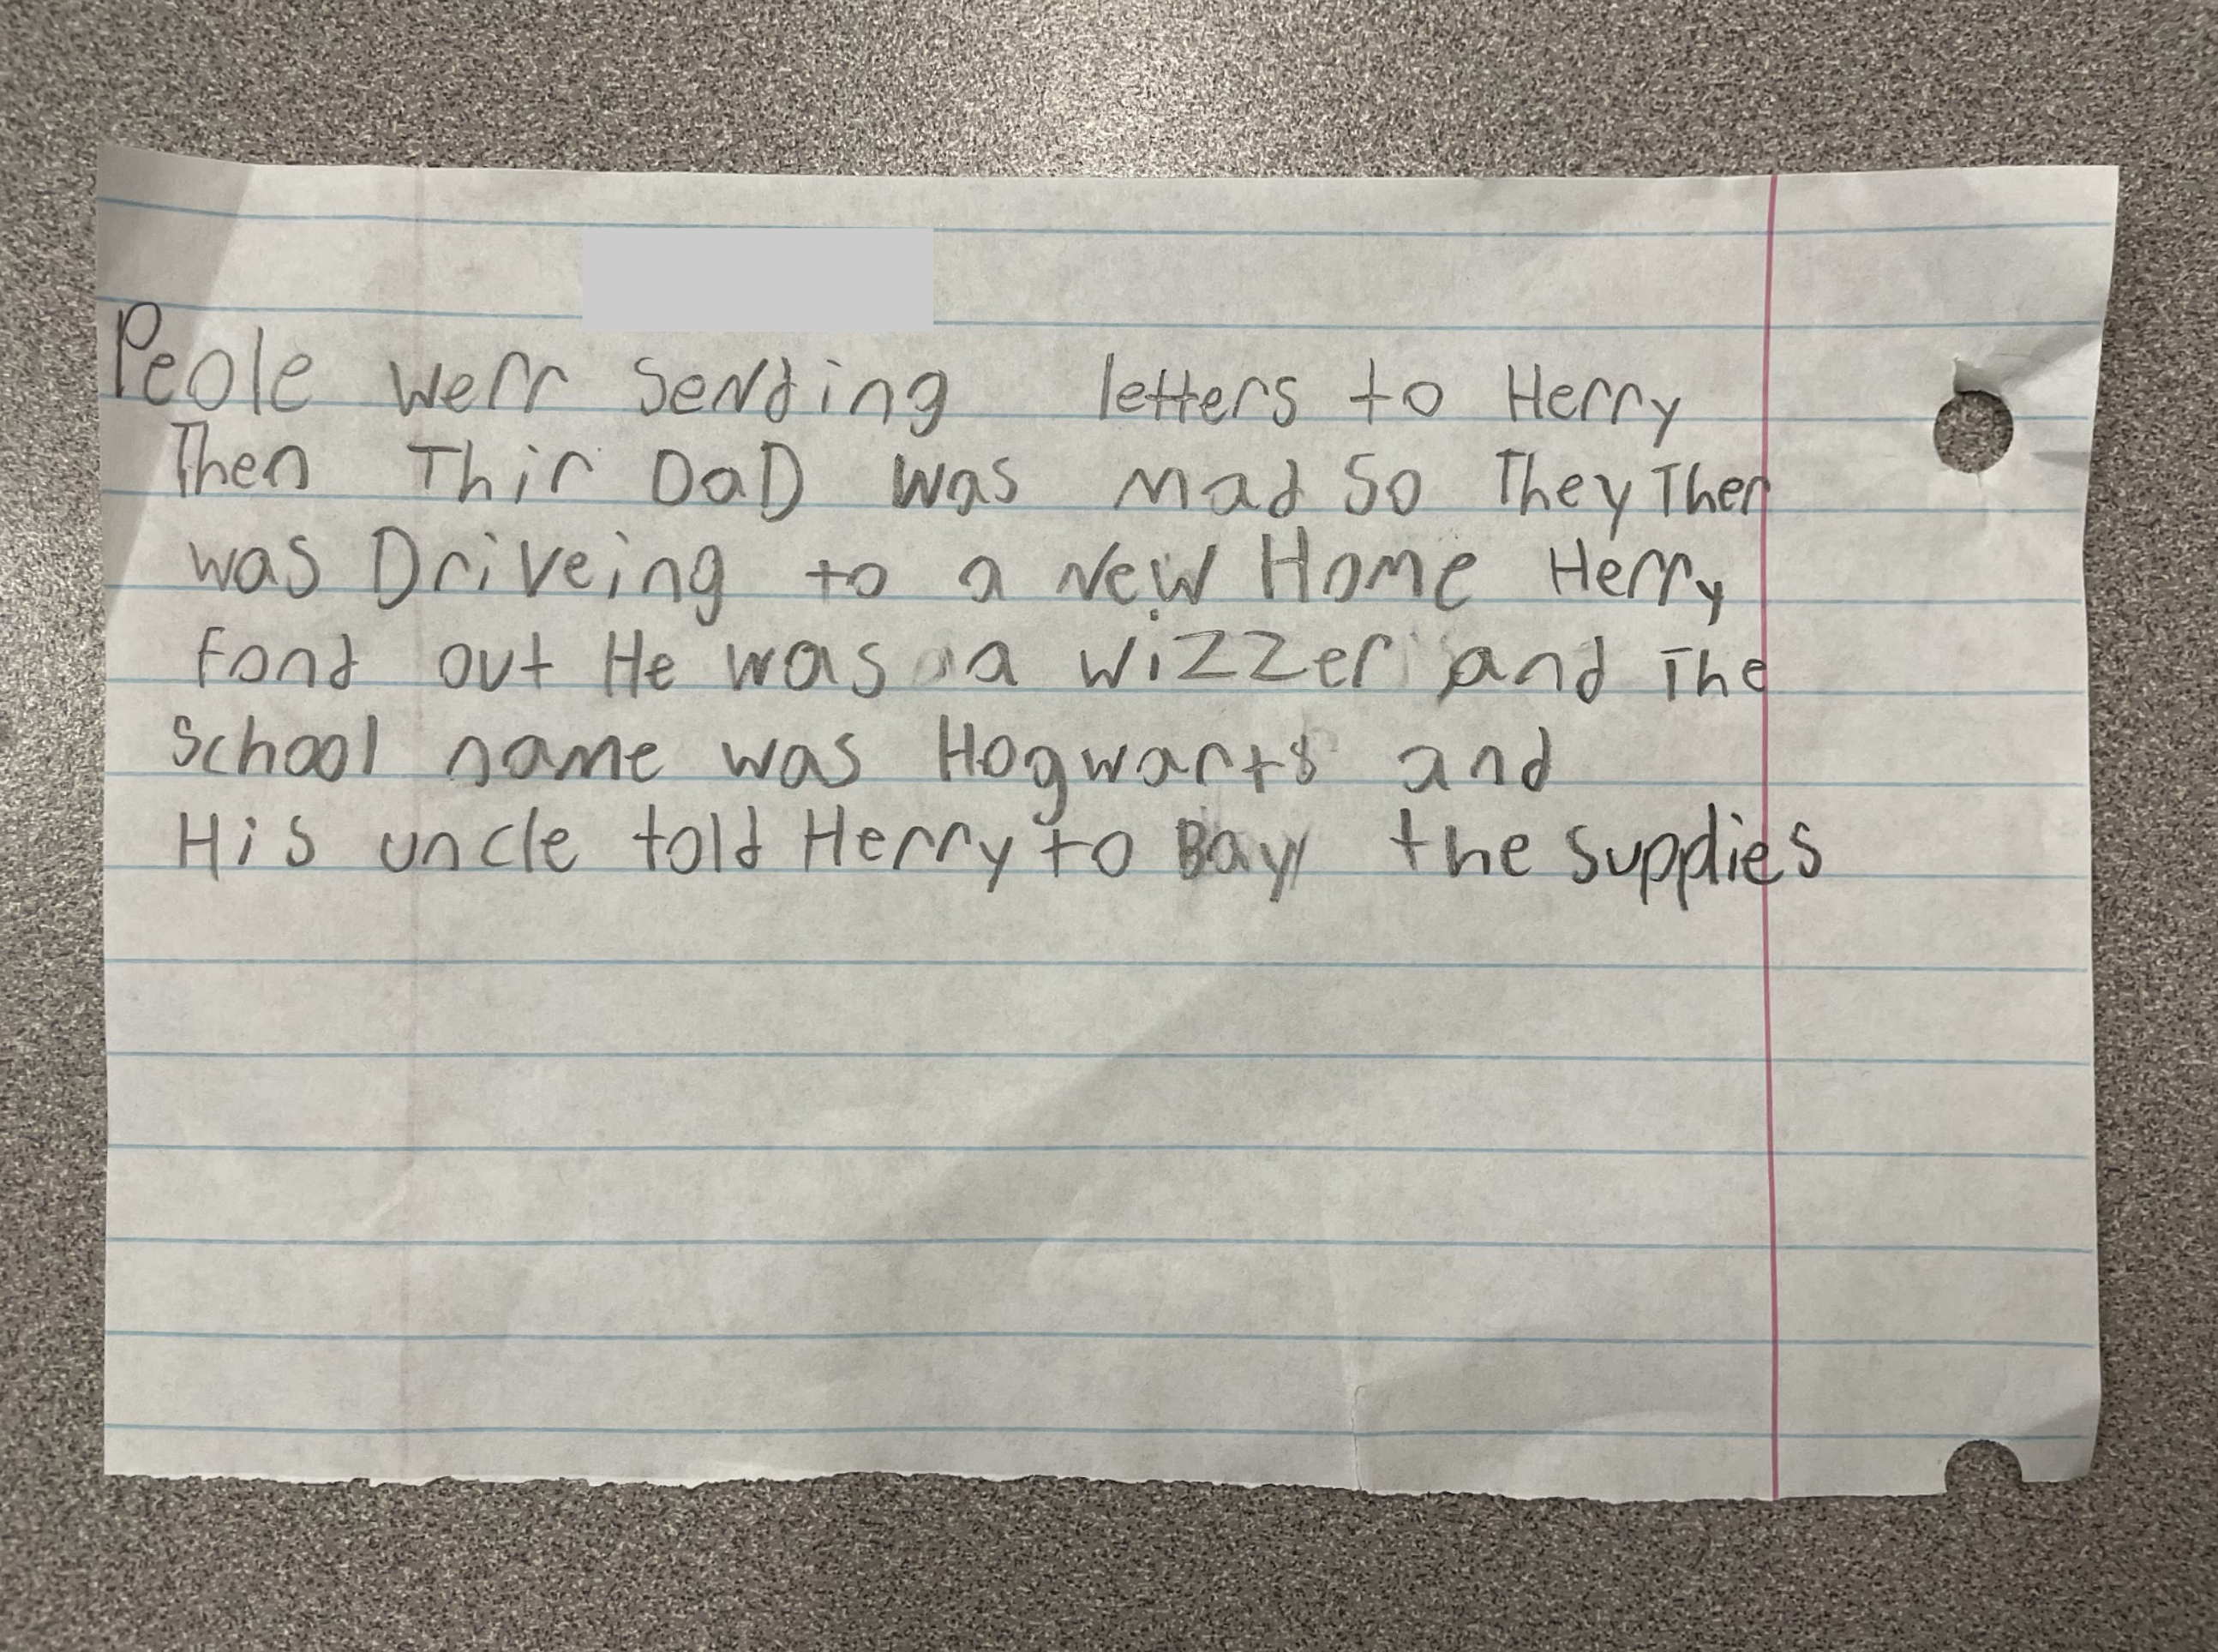 Peole werr Sending letters to Herry
Then Thir DaD was mad So They Then
was Driveing to a New Home Herry
Fond out He was a wizzer and The
School name was Hogwarts and
His uncle told Herry to Bay the supplies